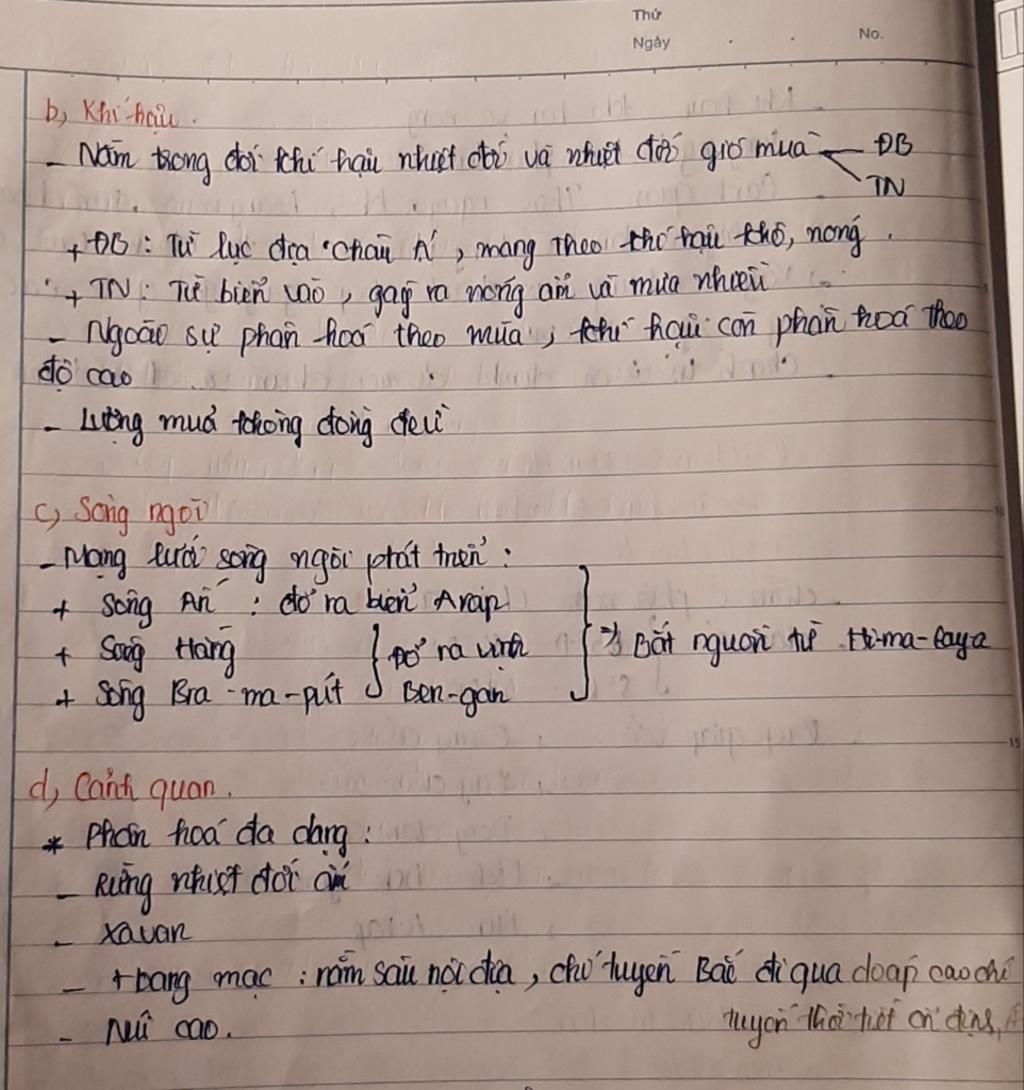 Thứ
Ngày . . No.
b, Khí hậu.
- Nằm trong đới khí hậu nhiệt đới và nhiệt đới gió mùa ĐB
TN
+ ĐB: Từ lục địa châu Á, mang theo khí hậu khô, nóng.
+ TN: Từ biển vào, gây ra nóng ẩm và mưa nhiều
- Ngoào sự phân hoá theo mùa, khí hậu còn phân hoá theo
độ cao
- Lượng mưa không đồng đều
c, Sông ngòi
- Mạng lưới sông ngòi phát triển:
+ Sông Ấn: đổ ra biển Arap
+ Sông Hằng } Đổ ra vịnh } => Bắt nguồn từ Hi-ma-laya
+ Sông Bra-ma-pút Ben-gan
d, Cảnh quan.
* Phân hoá đa dạng:
- Rừng nhiệt đới ẩm
- Xavan
- +hang mạc: nằm sâu nội địa, chí tuyến Bắc đi qua cao chí
- Núi cao. tuyến thời tiết ổn định,
15